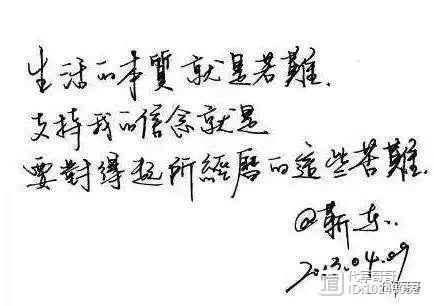 生活的本質就是苦難.
支持我的信念就是
要對得起所經曆的這些苦難.
@靳东..
2013.04.09
代享哥哥